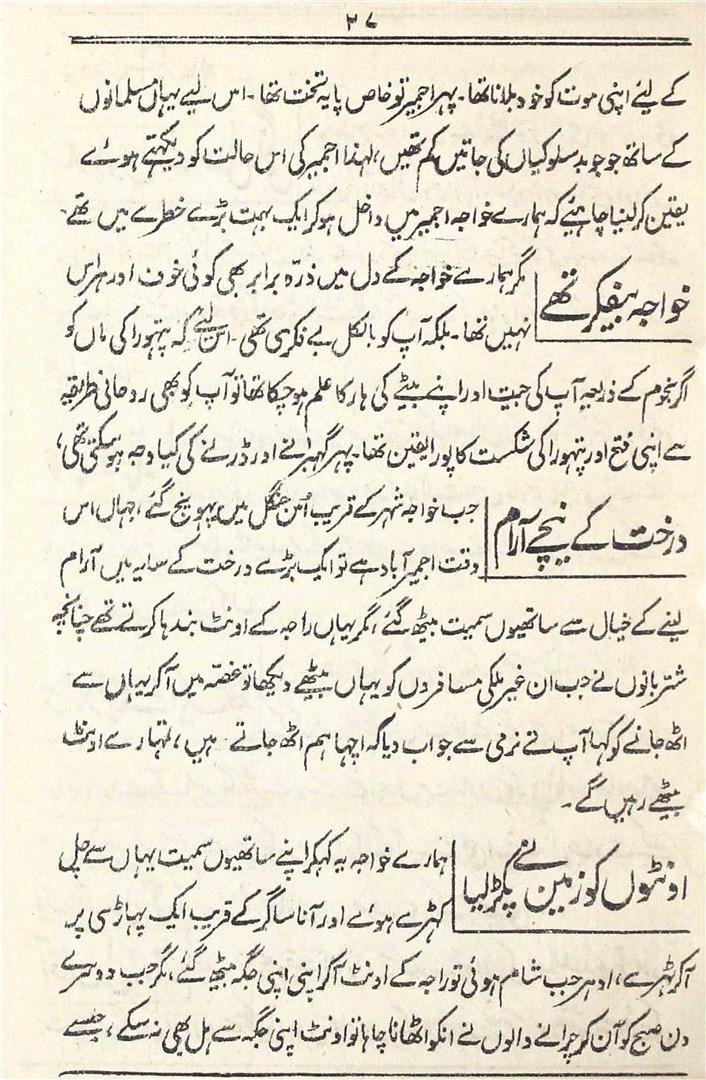 ۳۷
کے لیئے اپنی موت کو خود بلانا تھا۔ پہر اجمیر تو خاص پایہ تخت تھا۔ اس لیے یہاں مسلمانوں
کے ساتھ جو جو بدسلوکیاں کی جاتیں کم تھیں، لہذا اجمیر کی اس حالت کو دیکھتے ہوئے
یقین کر لینا چاہیئے کہ ہمارے خواجہ اجمیر میں داخل ہو کر ایک بہت بڑے خطرے میں تھے
خواجہ بیفکر تھے
مگر ہمارے خواجہ کے دل میں ذرّہ برابر بھی کوئی خوف اور ہراس
نہیں تھا۔ بلکہ آپ کو بالکل بے فکری تھی۔ اس لیے کہ پتہورا کی ماں کو
اگر نجوم کے ذریعہ آپ کی جیت اور اپنے بیٹے کی ہار کا علم ہو چکا تھا تو آپ کو بھی روحانی طریقہ
سے اپنی فتح اور پتہورا کی شکست کا پورا یقین تھا۔ پہر گہبرانے اور ڈرنے کی کیا وجہ ہو سکتی تھی،
درخت کے نیچے آرام
جب خواجہ شہر کے قریب اُس جنگل میں پہونچ گئے، جہاں اس
وقت اجمیر آباد ہے تو ایک بڑے درخت کے سایہ میں آرام
لینے کے خیال سے ساتھیوں سمیت بیٹھ گئے، مگر یہاں راجہ کے اونٹ بندہا کرتے تھے چنانچہ
شتربانوں نے جب ان غیر ملکی مسافروں کو یہاں بیٹھے دیکھا تو غصہ میں آ کر یہاں سے
اٹھ جانے کو کہا آپ نے نرمی سے جواب دیا کہ اچہا ہم اٹھ جاتے ہیں، تمہارے اونٹ
بیٹھے رہیں گے۔
اونٹوں کو زمین نے پکڑ لیا
ہمارے خواجہ یہ کہکر اپنے ساتھیوں سمیت یہاں سے چل
کہڑے ہوئے اور آنا ساگر کے قریب ایک پہاڑی پر
آ کر ٹہرے، ادہر جب شام ہوئی تو راجہ کے اونٹ آ کر اپنی اپنی جگہ بیٹھ گئے، مگر جب دوسرے
دن صبح کو آن کر چرانے والوں نے انکو اٹھانا چاہا تو اونٹ اپنی جگہ سے ہل بھی نہ سکے، جیسے